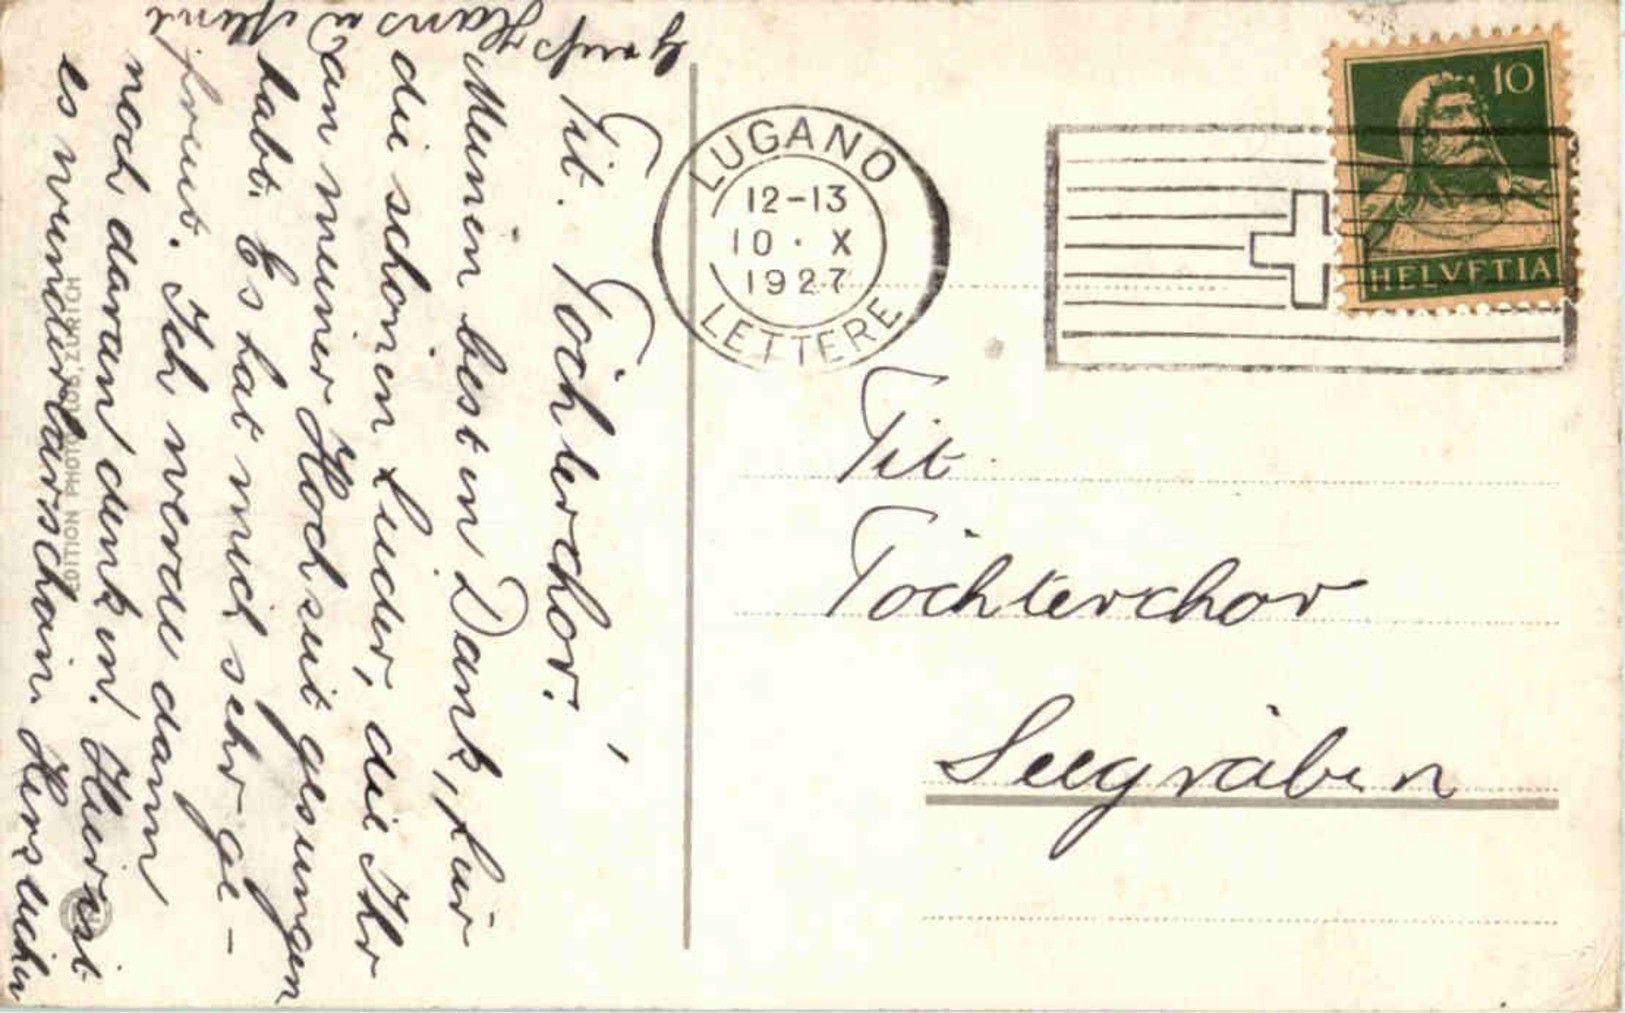 Tit. Töchterchor!
Meinen besten Dank, für
die schönen Lieder, die Ihr
an meiner Hochzeit gesungen
habt. Es hat mich sehr ge-
freut. Ich werde dann
noch daran denken. Hier ist
es wunderbarschön. Herzlichen
Gruss Hans u
EDITION PHOTOGLOB, ZÜRICH
LUGANO
12-13
10 · X
1927
LETTERE
10
HELVETIA
Tit.
Töchterchor
Seegräben